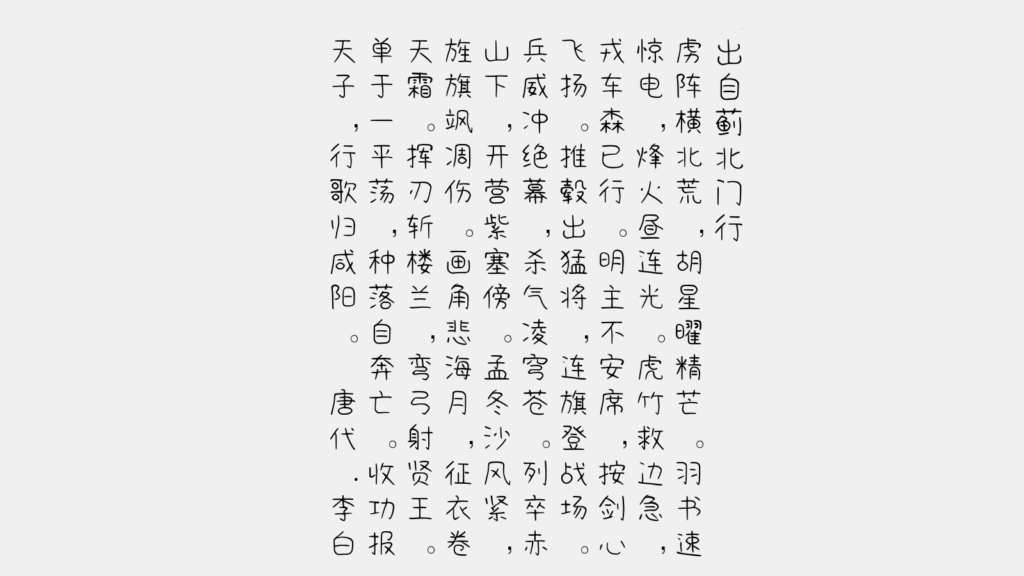 出自蓟北门行
虏阵横北荒，胡星曜精芒。羽书速
惊电，烽火昼连光。虎竹救边急，
戎车森已行。明主不安席，按剑心
飞扬。推毂出猛将，连旗登战场。
兵威冲绝幕，杀气凌穹苍。列卒赤
山下，开营紫塞傍。孟冬沙风紧，
旌旗飒凋伤。画角悲海月，征衣卷
天霜。挥刃斩楼兰，弯弓射贤王。
单于一平荡，种落自奔亡。收功报
天子，行歌归咸阳。 唐代.李白